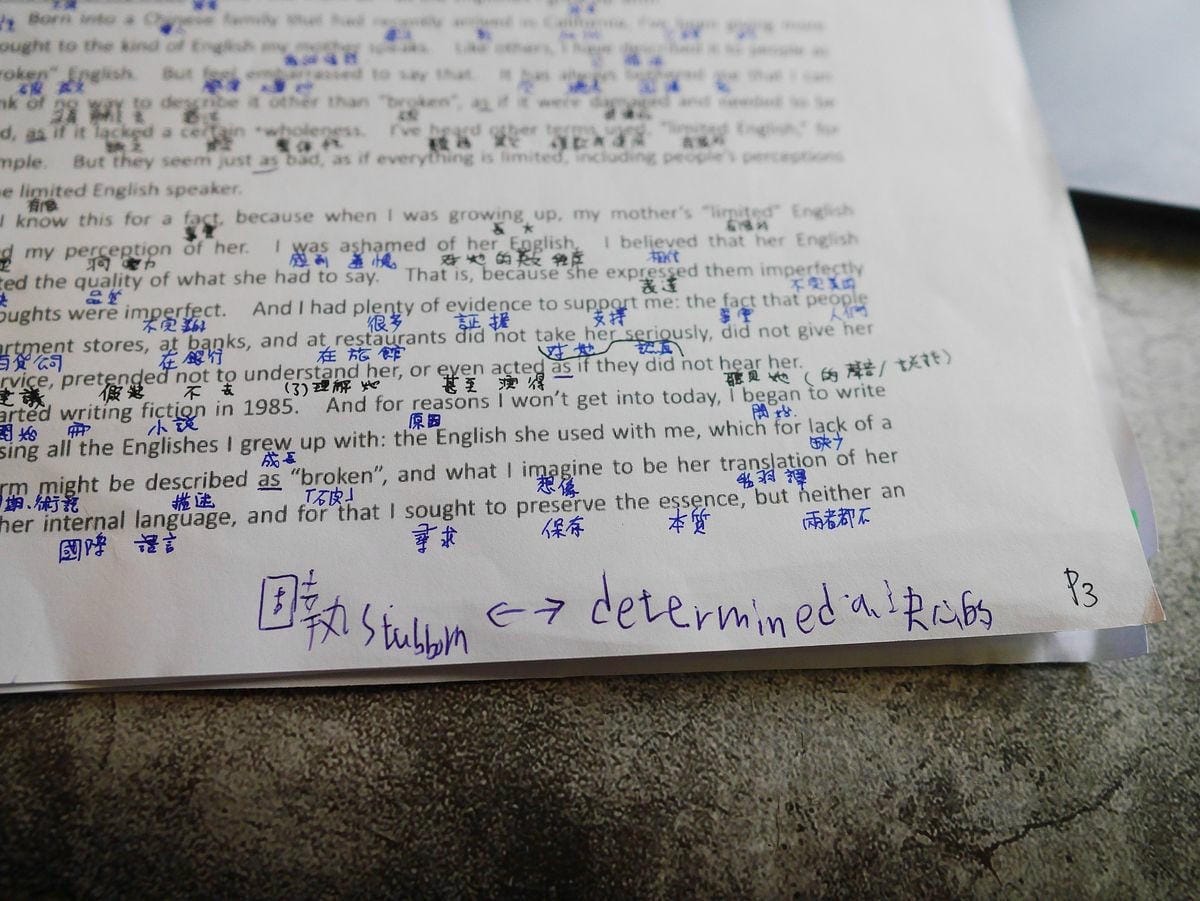 Born into a Chinese family that had recently arrived in California, I've been giving more
ought to the kind of English my mother speaks. Like others, I have described it to people as
roken" English. But feel embarrassed to say that. It has always bothered me that I can
nk of no way to describe it other than "broken", as if it were damaged and needed to be
d, as if it lacked a certain wholeness. I've heard other terms used, "limited English," for
mple. But they seem just as bad, as if everything is limited, including people's perceptions
e limited English speaker.
I know this for a fact, because when I was growing up, my mother's "limited" English
事實 長大 有限的
ed my perception of her. I was ashamed of her English. I believed that her English
洞察力 感到 羞愧 對她的英文程度 相信
ted the quality of what she had to say. That is, because she expressed them imperfectly
品質 表達 不完美的
oughts were imperfect. And I had plenty of evidence to support me: the fact that people
不完美的 很多 証據 支撐 事實 人們
artment stores, at banks, and at restaurants did not take her seriously, did not give her
百貨公司 在銀行 在旅館 對她 認真
rvice, pretended not to understand her, or even acted as if they did not hear her.
建議 假裝 不去 理解她 甚至 演得 聽見她 (的聲音/
arted writing fiction in 1985. And for reasons I won't get into today, I began to write
開始 小說 原因 開始
sing all the Englishes I grew up with: the English she used with me, which for lack of a
成長 缺少
rm might be described as "broken", and what I imagine to be her translation of her
術語 描述 「不皮」 想像 翻譯
her internal language, and for that I sought to preserve the essence, but neither an
國際 語言 尋求 保存 本質 兩者都不
固執 stubborn ↔ determined 決心的
P3